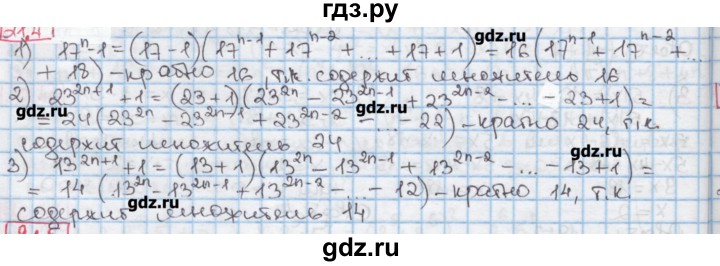 гдз.ру
21.4
1) 17ⁿ-1 = (17-1)(17ⁿ⁻¹ + 17ⁿ⁻² + ... + 17 + 1) = 16(17ⁿ⁻¹ + 17ⁿ⁻² + ...
+ 18) - кратно 16, т.к. содержит множитель 16
2) 23²ⁿ⁺¹ + 1 = (23+1)(23²ⁿ - 23²ⁿ⁻¹ + 23²ⁿ⁻² - ... - 23 + 1) =
= 24(23²ⁿ - 23²ⁿ⁻¹ + 23²ⁿ⁻² - ... - 22) - кратно 24, т.к.
содержит множитель 24
3) 13²ⁿ⁺¹ + 1 = (13+1)(13²ⁿ - 13²ⁿ⁻¹ + 13²ⁿ⁻² - ... - 13 + 1) =
= 14(13²ⁿ - 13²ⁿ⁻¹ + 13²ⁿ⁻² - ... - 12) - кратно 14, т.к.
содержит множитель 14
gdz.ru